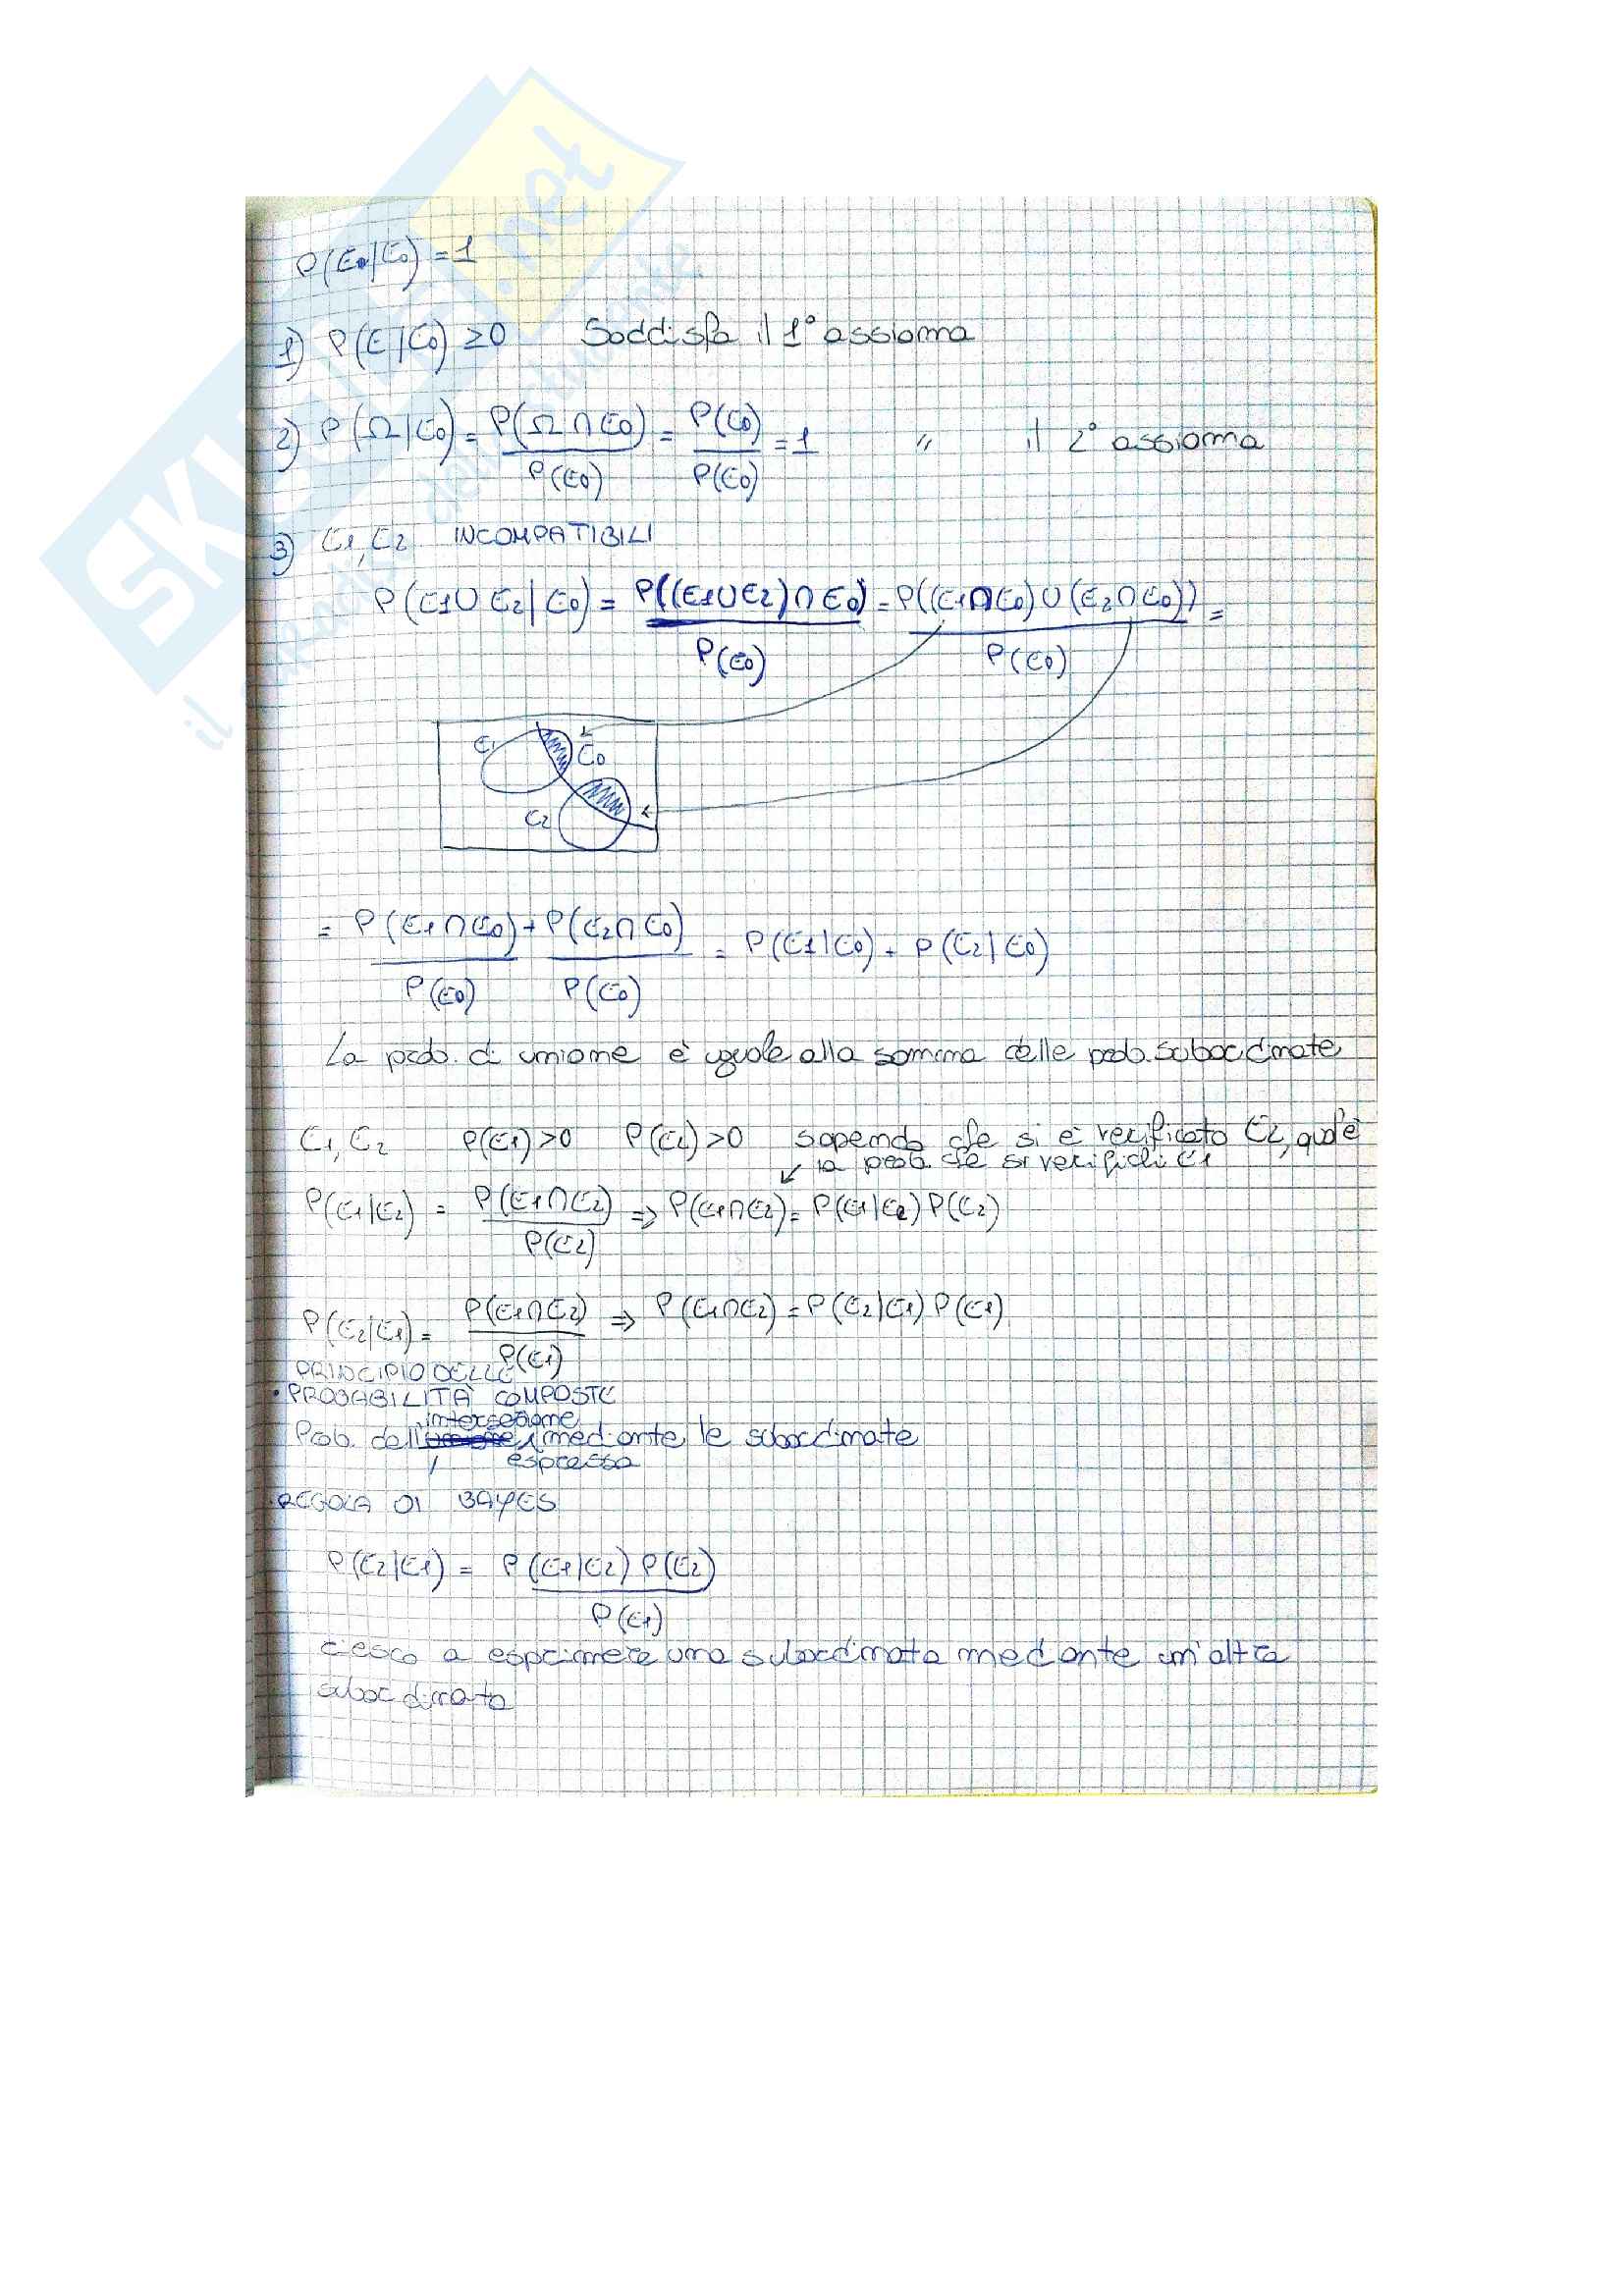 SKUOLA.net
il paradiso dello studente
P(E0|E0) = 1
1) P(E|E0) ≥ 0 Soddisfa il 1° assioma
2) P(Ω|E0) = P(Ω∩E0)/P(E0) = P(E0)/P(E0) = 1 " il 2° assioma
3) E1, E2 INCOMPATIBILI
P(E1∪E2|E0) = P((E1∪E2)∩E0)/P(E0) = P((E1∩E0)∪(E2∩E0))/P(E0) =
E1 E0
E2
= P(E1∩E0)/P(E0) + P(E2∩E0)/P(E0) = P(E1|E0) + P(E2|E0)
La prob. di unione è uguale alla somma delle prob. subordinate
E1, E2 P(E1)>0 P(E2)>0 sapendo che si è verificato E2, qual'è
↙ la prob. che si verifichi E1
P(E1|E2) = P(E1∩E2)/P(E2) ⇒ P(E1∩E2) = P(E1|E2) P(E2)
P(E2|E1) = P(E1∩E2)/P(E1) ⇒ P(E1∩E2) = P(E2|E1) P(E1)
PRINCIPIO DELLE
• PROBABILITÀ COMPOSTE
intersezione
Prob. dell' mediante le subordinate
espressa
• REGOLA DI BAYES
P(E2|E1) = P(E1|E2) P(E2)/P(E1)
riesco a esprimere una subordinata mediante un'altra
subordinata